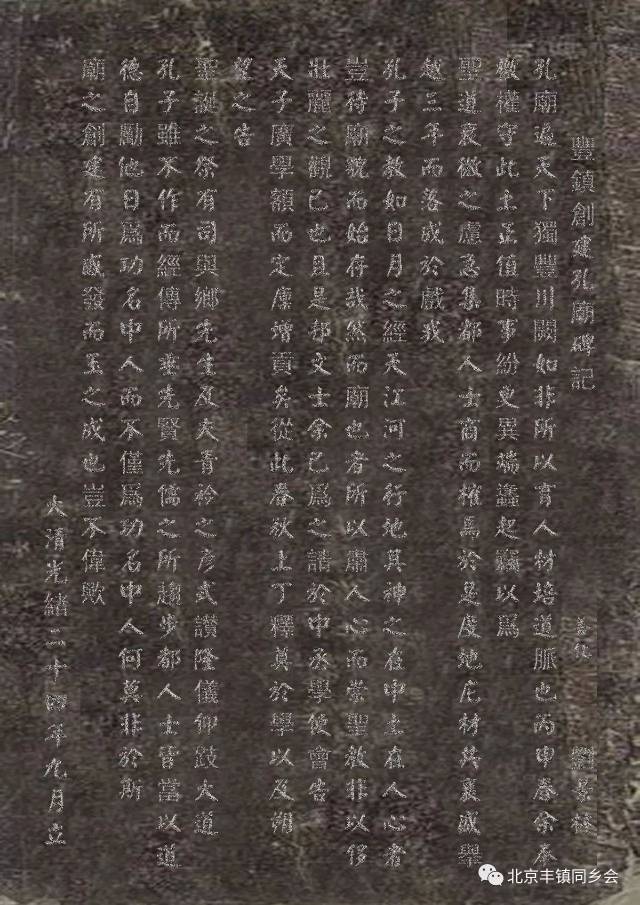 豐鎮創建孔廟碑記
善化
孔廟遍天下獨豐川闕如非所以育人材培道脈也丙申春余奉
檄權守此土正值時事紛更異端蠭起竊以為
聖道衰微之慮急集都人士商而榷焉於是度地庀材共襄盛舉
越三年而落成於戲我
孔子之教如日月之經天江河之行地其神之在中土在人心者
豈待廟貌而始存哉然而廟也者所以肅人心而崇聖教非以侈
壯麗之觀已也且是邦文士余已為之請於中丞學使會告
天子廣學額而定廩增貢矣從此春秋上丁釋奠於學以及朔
望之告
聖誕之祭有司與鄉先生及夫青衿之彥式讚隆儀仰跂大道
孔子雖不作而經傳所垂先賢先儒之所趨步都人士皆當以道
德自勵他日為功名中人而不僅為功名中人何莫非於斯
廟之創建有所感發而玉之成也豈不偉歟
大清光緒二十四年九月立
北京丰镇同乡会